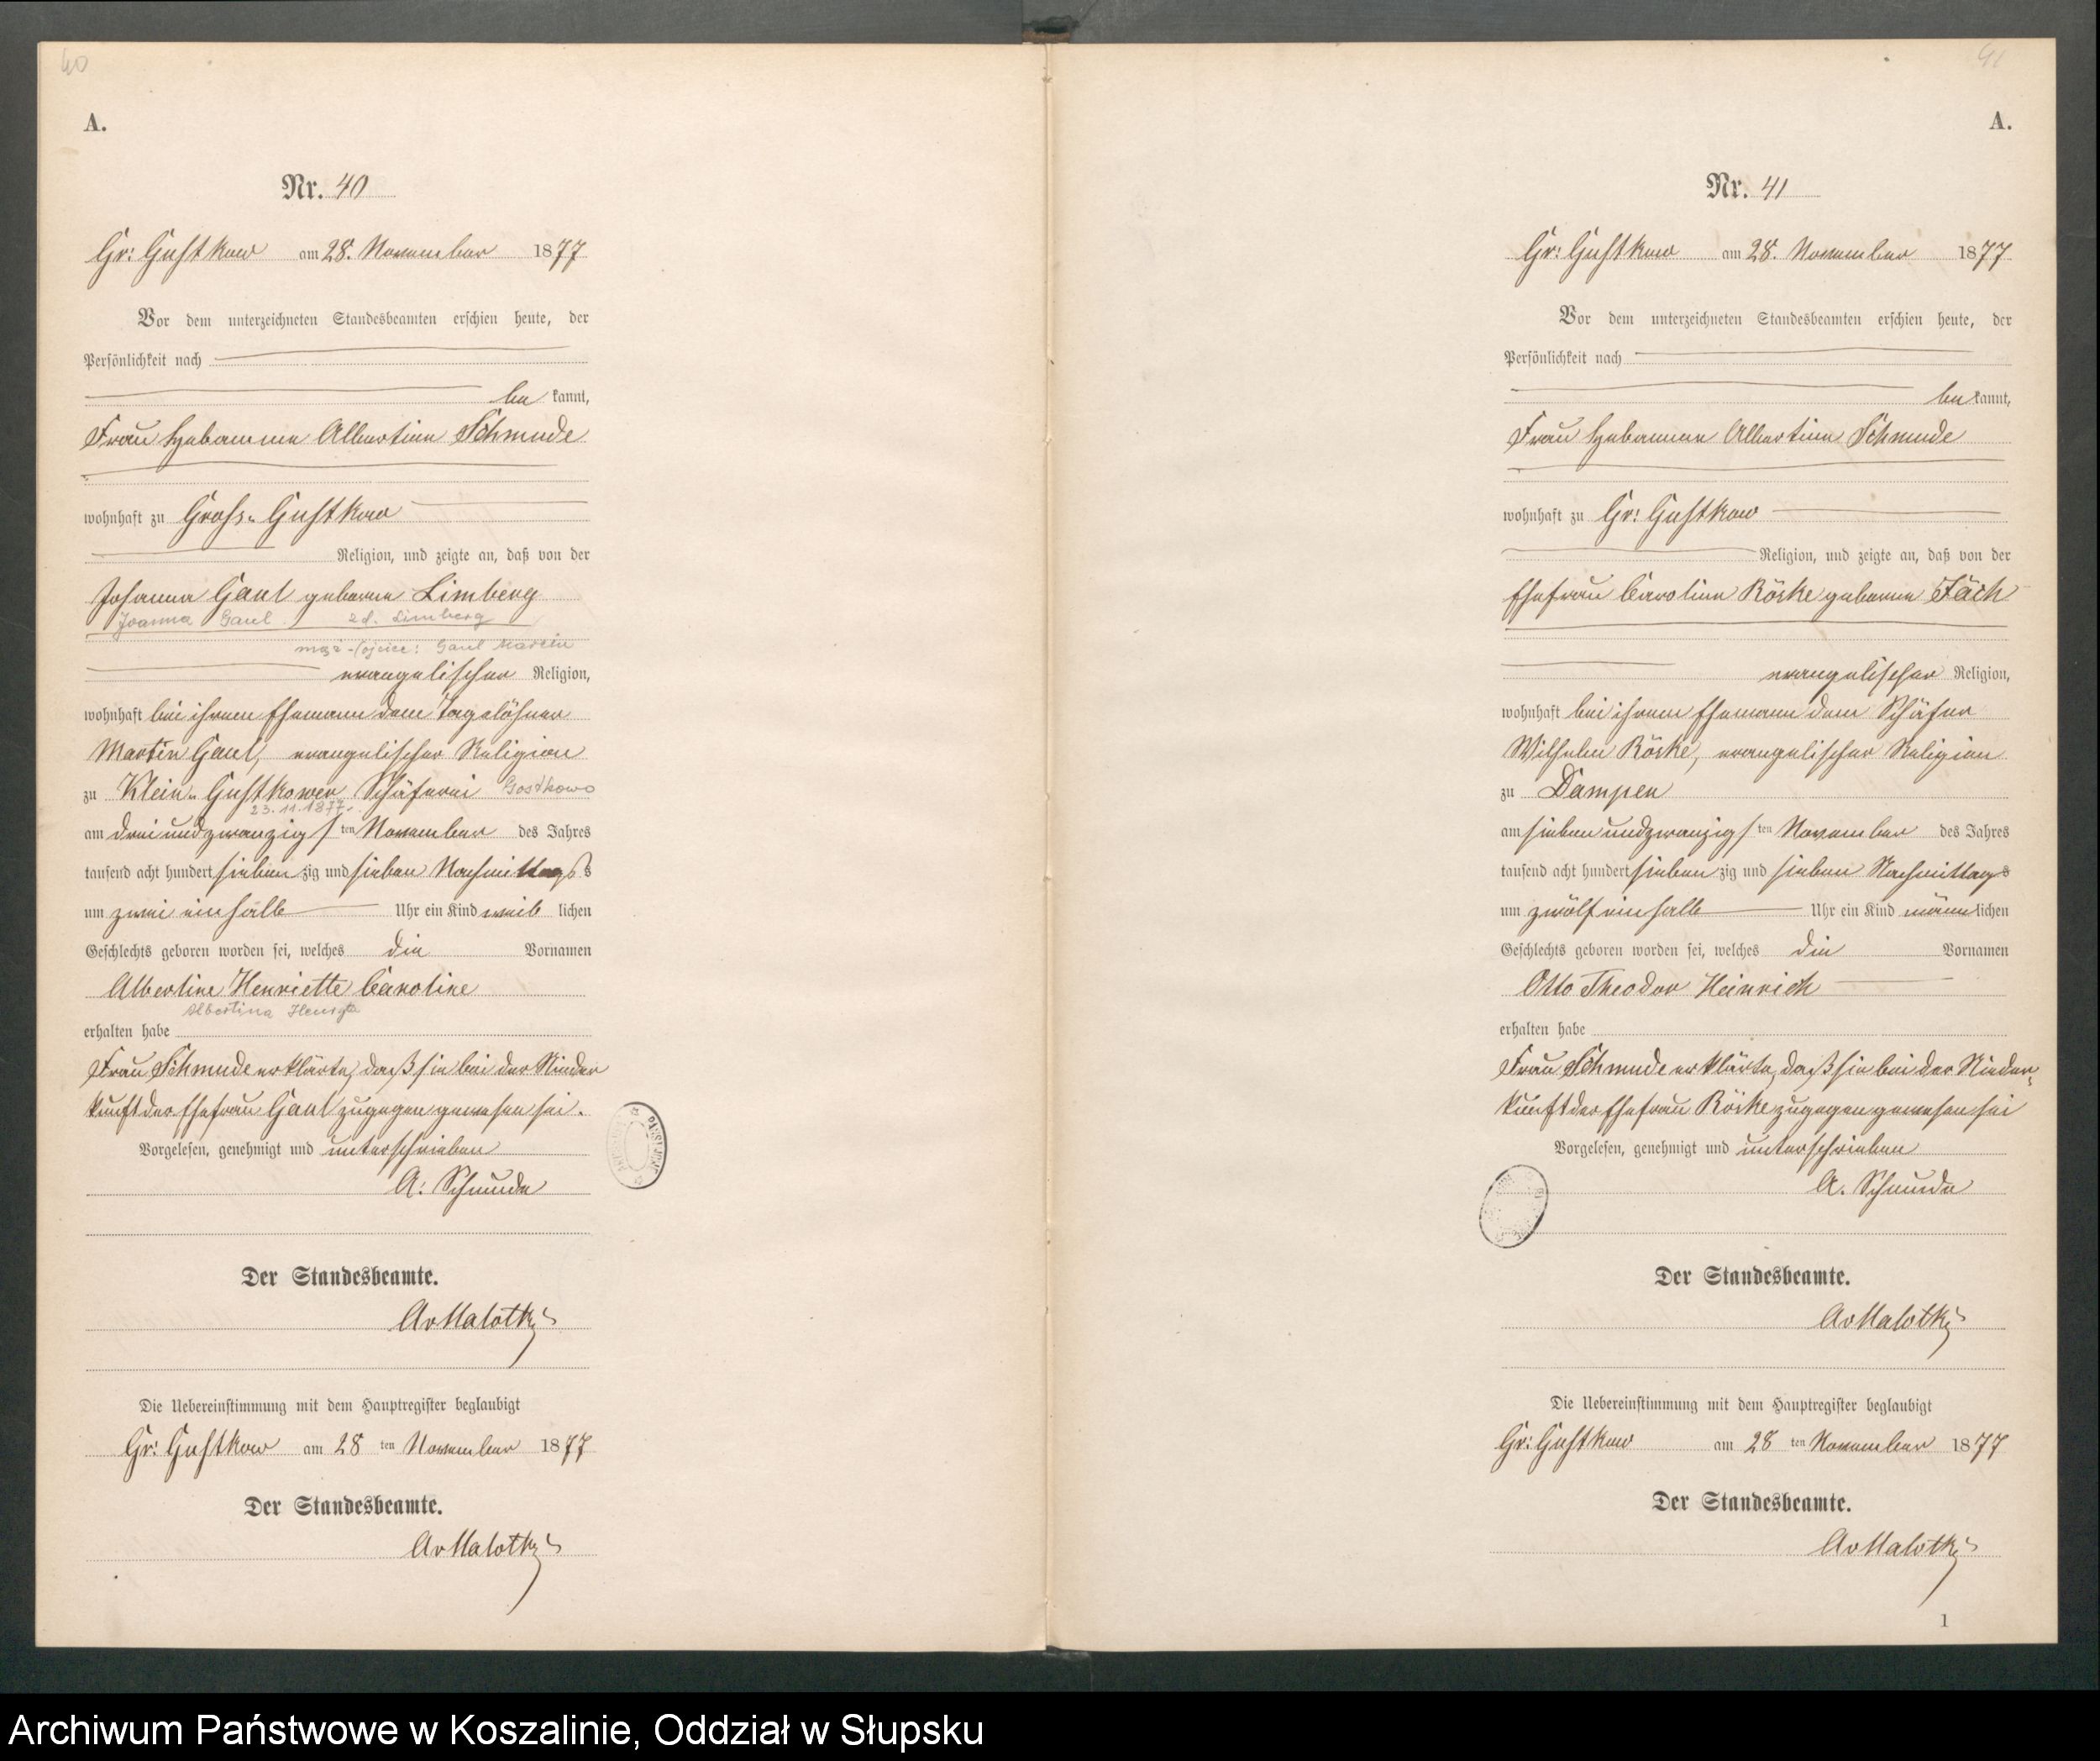 40
A.
Nr. 40
Gr: Gustkow am 28. November 1877
Vor dem unterzeichneten Standesbeamten erschien heute, der
Persönlichkeit nach
be kannt,
Frau Hebamme Albertine Schmude
wohnhaft zu Gross-Gustkow
Religion, und zeigte an, daß von der
Johanna Gaul geborne Limberg
Joanna Gaul zd. Limberg
mąż-/ojciec: Gaul Marcin
evangelischer Religion,
wohnhaft bei ihrem Ehemann dem Tagelöhner
Martin Gaul, evangelischer Religion
zu Klein-Gustkower Schäferei Gostkowo
23.11.1877.
am dreiundzwanzigsten November des Jahres
tausend acht hundert siebenzig und sieben Nachmittags
um zwei einhalb Uhr ein Kind weiblichen
Geschlechts geboren worden sei, welches die Vornamen
Albertine Henriette Caroline
Albertina Henryta
erhalten habe
Frau Schmude erklärte, daß sie bei der Nieder
kunft der Ehefrau Gaul zugegen gewesen sei.
Vorgelesen, genehmigt und unterschrieben
A: Schmude
Der Standesbeamte.
AvMalotki
Die Uebereinstimmung mit dem Hauptregister beglaubigt
Gr: Gustkow am 28ten November 1877
Der Standesbeamte.
AvMalotki
41
A.
Nr. 41
Gr: Gustkow am 28. November 1877
Vor dem unterzeichneten Standesbeamten erschien heute, der
Persönlichkeit nach
be kannt,
Frau Hebamme Albertine Schmude
wohnhaft zu Gr: Gustkow
Religion, und zeigte an, daß von der
Ehefrau Caroline Röske geborne Fäch
evangelischer Religion,
wohnhaft bei ihrem Ehemann dem Schäfer
Wilhelm Röske, evangelischer Religion
zu Dampen
am siebenundzwanzigsten November des Jahres
tausend acht hundert siebenzig und sieben Nachmittags
um zwölf einhalb Uhr ein Kind männlichen
Geschlechts geboren worden sei, welches die Vornamen
Otto Theodor Heinrich
erhalten habe
Frau Schmude erklärte, daß sie bei der Nieder-
kunft der Ehefrau Röske zugegen gewesen sei
Vorgelesen, genehmigt und unterschrieben
A. Schmude
Der Standesbeamte.
AvMalotki
Die Uebereinstimmung mit dem Hauptregister beglaubigt
Gr: Gustkow am 28ten November 1877
Der Standesbeamte.
AvMalotki
1
Archiwum Państwowe w Koszalinie, Oddział w Słupsku